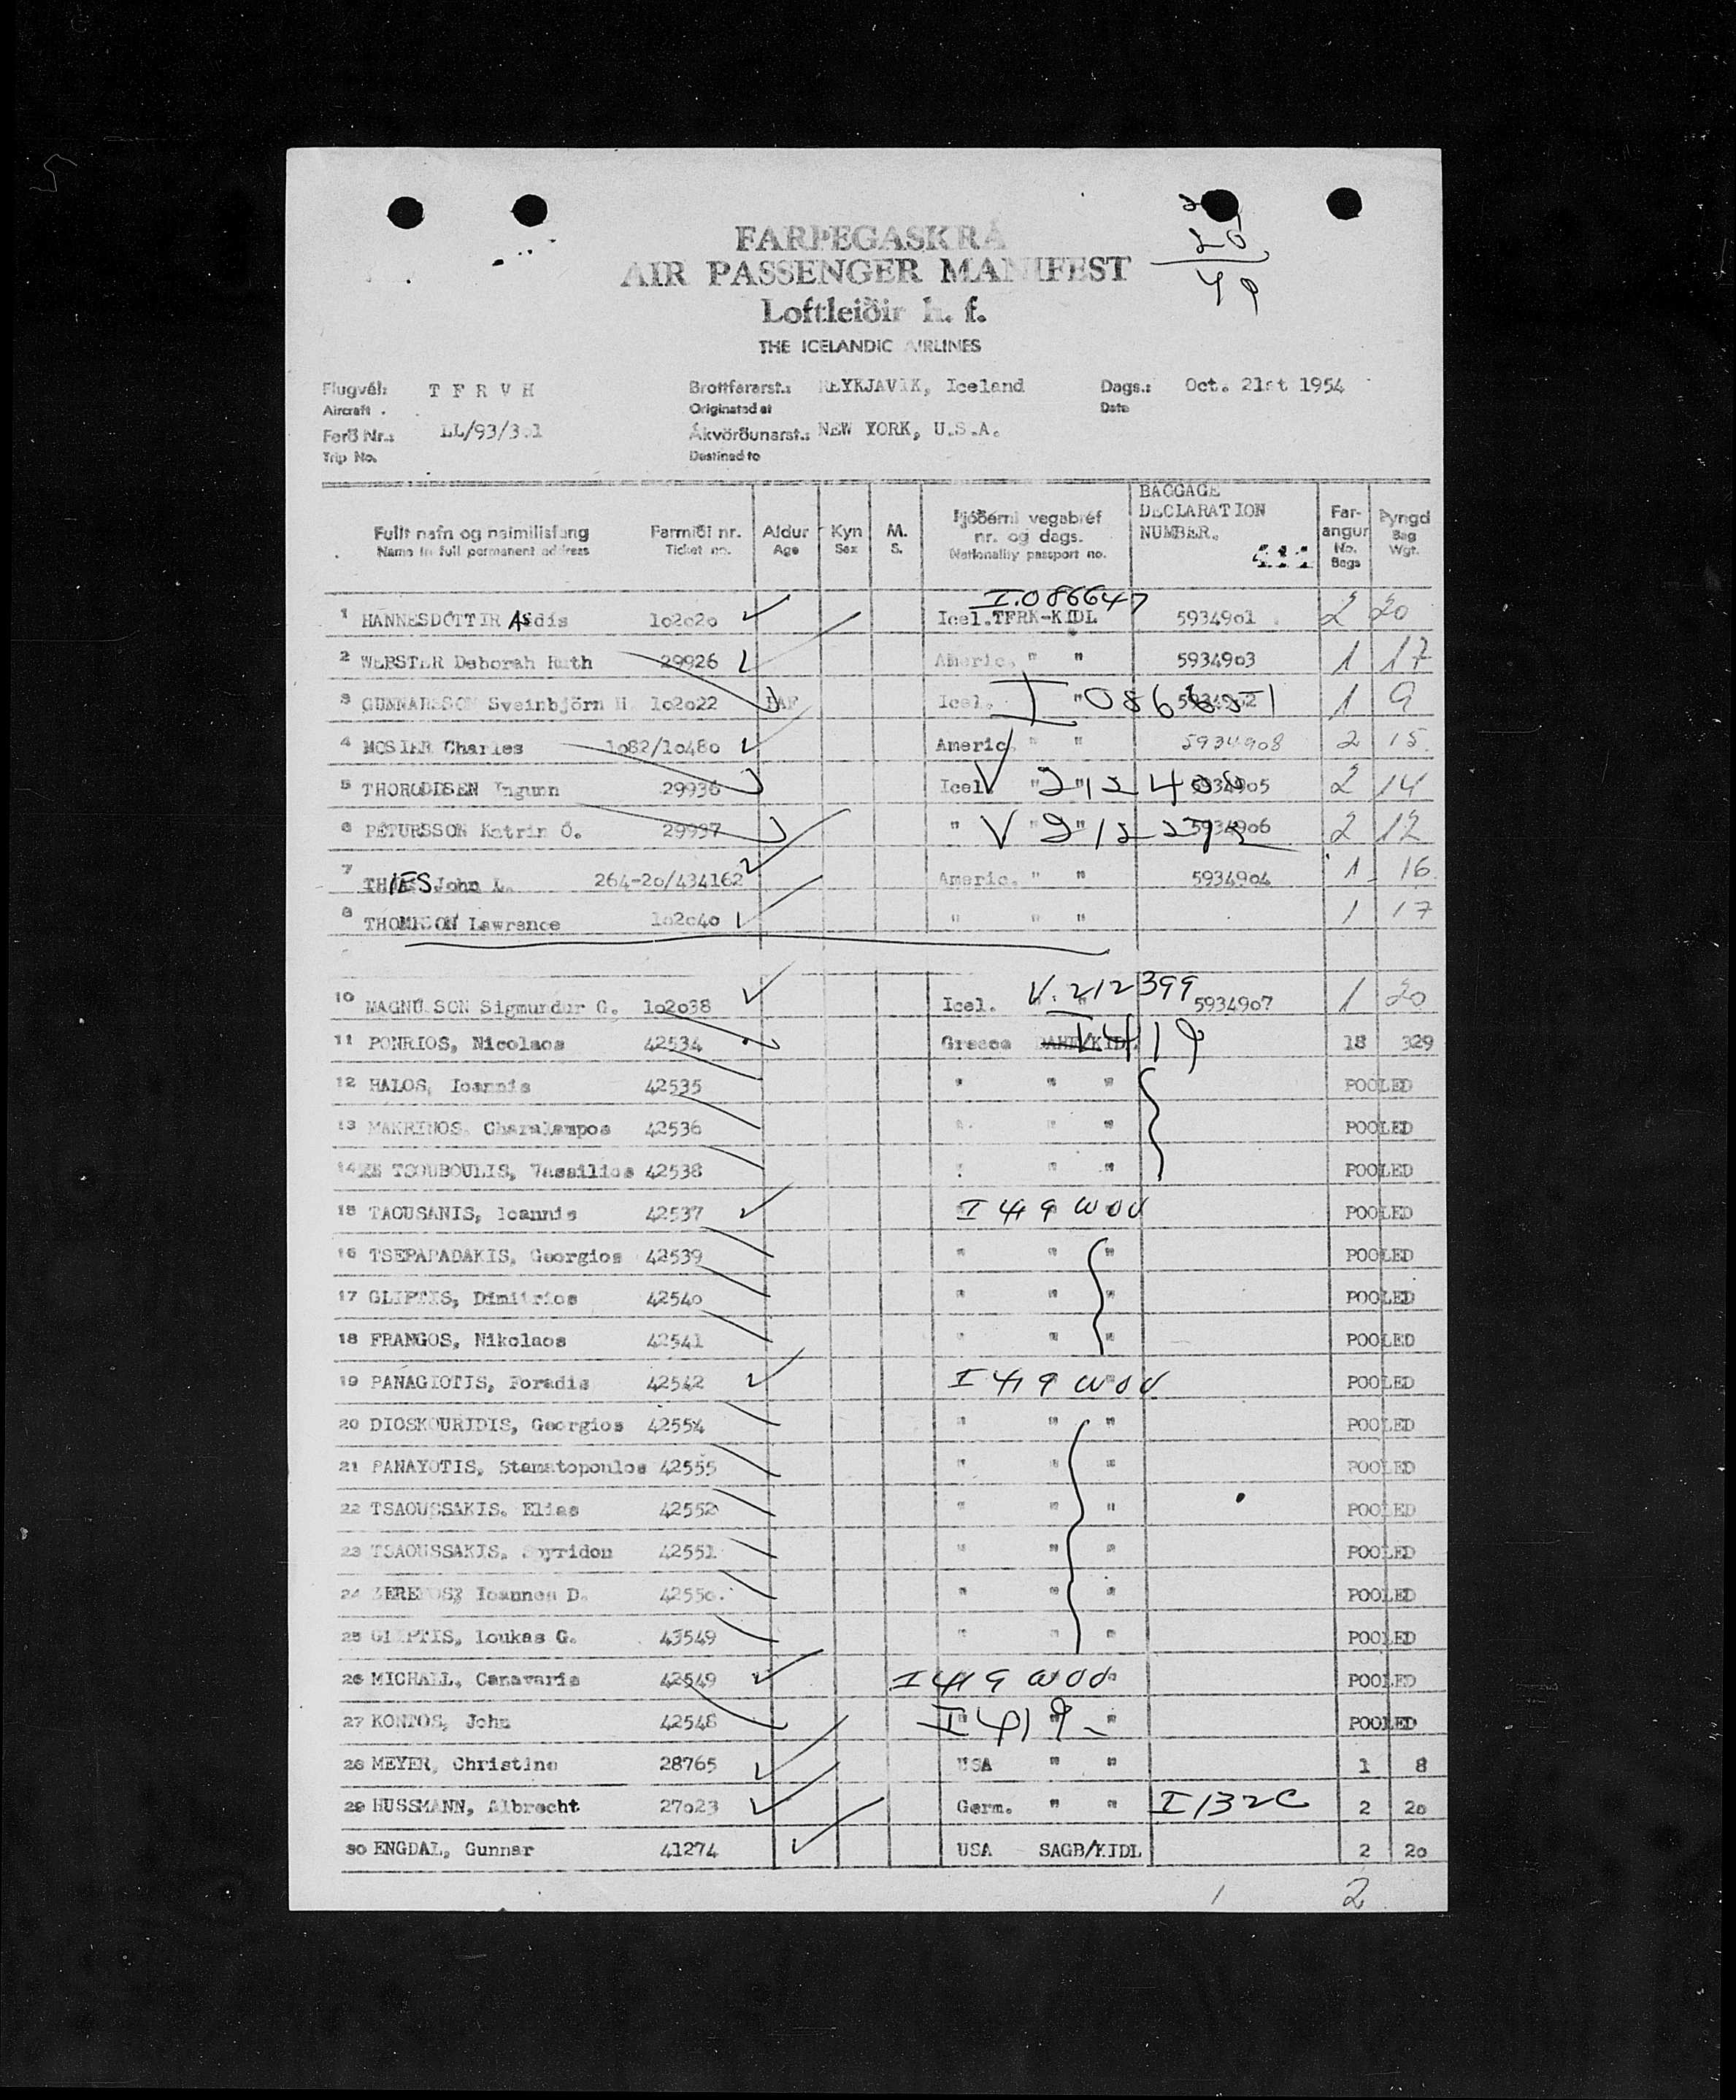 FARÞEGASKRÁ
AIR PASSENGER MANIFEST
Loftleiðir h. f.
THE ICELANDIC AIRLINES
20
49
Flugvél: T F R V H Brottfararst.: REYKJAVIK, Iceland Dags.: Oct. 21st 1954
Aircraft Originated at Date
Ferð Nr.: LL/93/301 Ákvörðunarst.: NEW YORK, U.S.A.
Trip No. Destined to
Fullt nafn og heimilisfang Farmiði nr. Aldur Kyn M. Þjóðerni vegabréf nr. og dags. BAGGAGE DECLARATION NUMBER. Farangur Þyngd
Name in full permanent address Ticket no. Age Sex S. Nationality passport no. No. Bags Bag Wgt.
I.086647
1 HANNESDÓTTIR Asdis 102020 Icel. TFRK-KIDL 5934901 2 20
2 WEBSTER Deborah Ruth 29926 Americ. " " 5934903 1 17
3 GUNNARSSON Sveinbjörn H. 102022 Icel. " 5934902 1 9
4 MOSIER Charles 1082/10480 Americ. " " 5934908 2 15
5 THORODDSEN Ingunn 29936 Icel. " " V 212400 5934905 2 14
6 PÉTURSSON Katrin Ó. 29937 " " " V 212272 5934906 2 12
7 THIES John L. 264-20/434162 Americ. " " 5934904 1 16
8 THOMPSON Lawrence 102040 " " " 1 17
10 MAGNUSSON Sigmundur G. 102038 Icel. V. 212399 5934907 1 20
11 PONRIOS, Nicolaos 42534 Greece 18 329
12 HALOS, Ioannis 42535 " " " POOLED
13 MAKRINOS, Charalampos 42536 " " " POOLED
14 TSOUBOULIS, Vassilios 42538 " " " POOLED
15 TAOUSANIS, Ioannis 42537 I 419 WOV POOLED
16 TSEPAPADAKIS, Georgios 42539 " " " POOLED
17 GLIPTIS, Dimitrios 42540 " " " POOLED
18 FRANGOS, Nikolaos 42541 " " " POOLED
19 PANAGIOTIS, Foradis 42542 I 419 WOV POOLED
20 DIOSKOURIDIS, Georgios 42554 " " " POOLED
21 PANAYOTIS, Stamatopoulos 42555 " " " POOLED
22 TSAOUSSAKIS. Elias 42552 " " " POOLED
23 TSAOUSSAKIS, Spyridon 42551 " " " POOLED
24 Ioannes D. 42550. " " " POOLED
25 GLIPTIS, loukas G. 43549 " " " POOLED
26 MICHALL, Canavaris 42549 I 419 WOV " POOLED
27 KONTOS, John 42548 I 419 " POOLED
28 MEYER, Christine 28765 USA " " 1 8
29 HUSSMANN, Albrecht 27023 Germ. " " I 132C 2 20
30 ENGDAL, Gunnar 41274 USA SAGB/KIDL 2 20
1 2